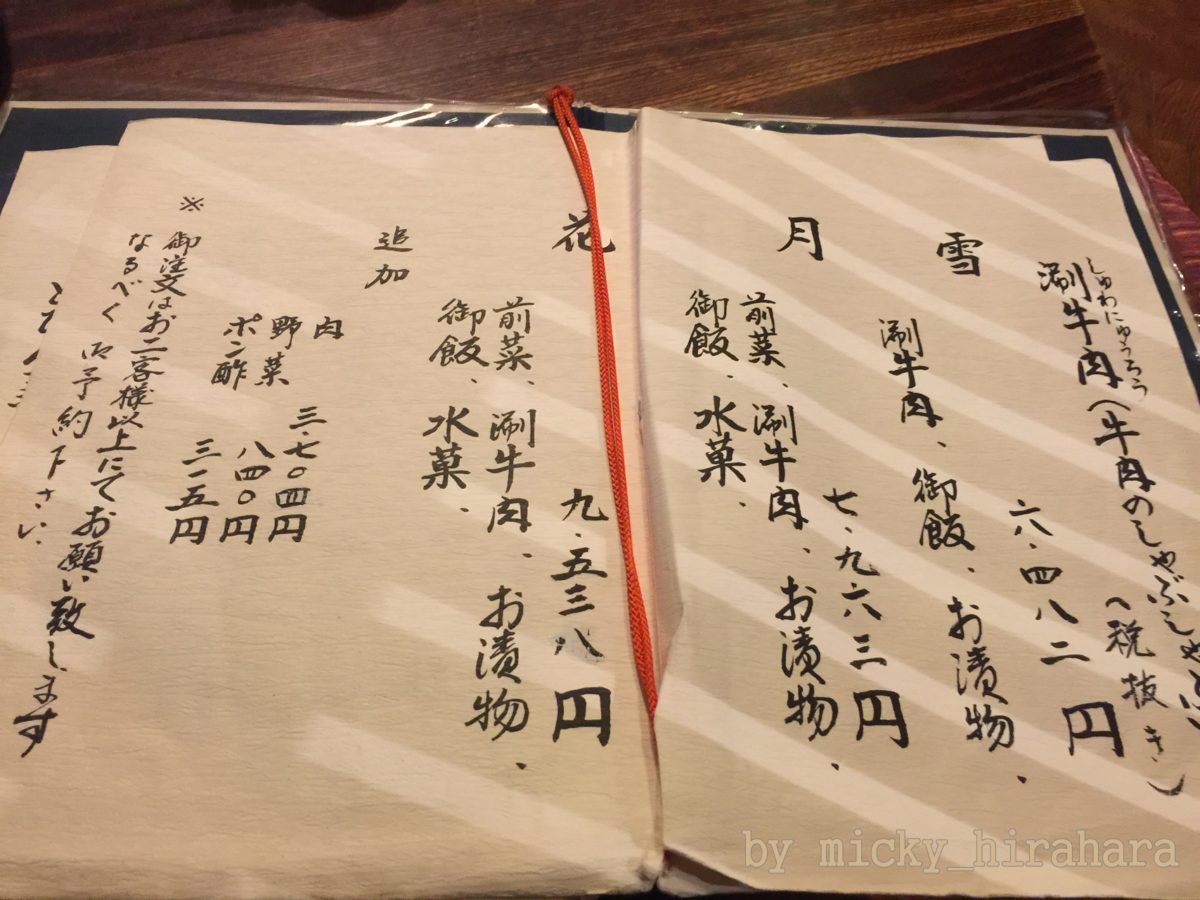 しゅわにゅうろう
涮牛肉(牛肉のしゃぶしゃぶ)
(税抜き)
雪
六、四八二円
涮牛肉、御飯、お漬物、
月
七、九六三円
前菜、涮牛肉、お漬物、
御飯、水菓、
花
九、五三八円
前菜、涮牛肉、お漬物、
御飯、水菓、
追加
肉 三、七〇四円
野菜 八四〇円
ポン酢 三一五円
※御注文はお二客様以上にてお願い致します
なるべく御予約下さい、
by micky_hirahara